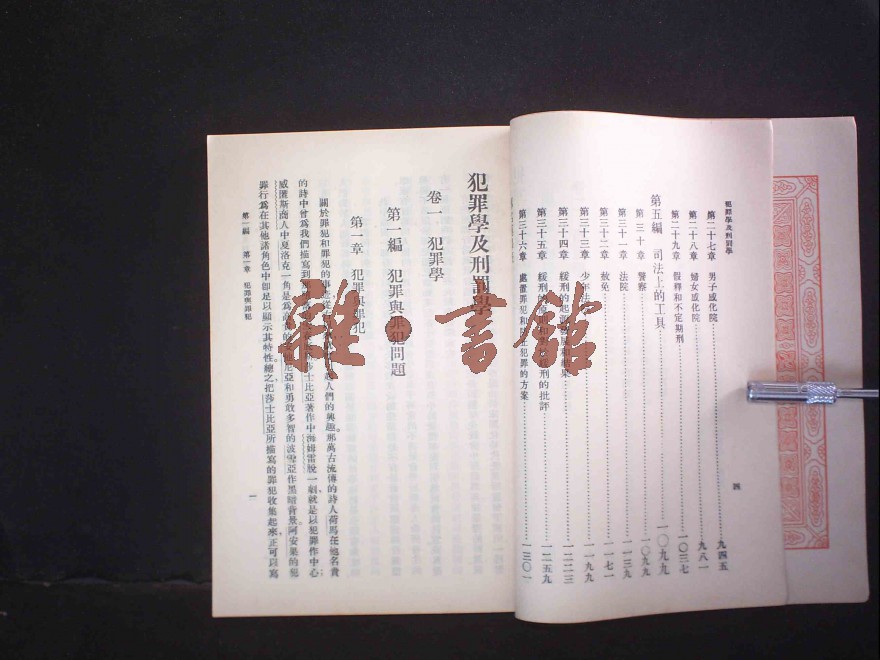 犯罪學及刑罰學
第二十七章 男子感化院 九四五
第二十八章 婦女感化院 九八一
第二十九章 假釋和不定期刑 一〇三七
第五編 司法上的工具 一〇九九
第三十章 警察 一〇九九
第三十一章 法院 一一三九
第三十二章 赦免 一一七一
第三十三章 少年法 一一九九
第三十四章 緩刑的起源發展和結果 一二二三
第三十五章 緩刑的 緩刑的批評 一二五九
第三十六章 處置罪犯和防止犯罪的方案 一三〇一
四
犯罪學及刑罰學
卷一 犯罪學
第一編 犯罪與罪犯問題
第一章 犯罪與罪犯
關於罪犯和罪犯的事 人們的興趣。那萬古流傳的詩人荷馬在他名貴
的詩中曾爲我們描寫到 莎士比亞著作中海姆雷脫一劇就是以犯罪作中心;
威匿斯商人中夏洛克一角是爲高 尼亞和勇敢多智的波雪亞作黑暗背景。阿安果的犯
罪行爲在其他諸角色中卽足以顯示其特性。總之,把莎士比亞所描寫的罪犯收集起來,正可以寫
第一編 第一章 犯罪與罪犯
一
雜·書館